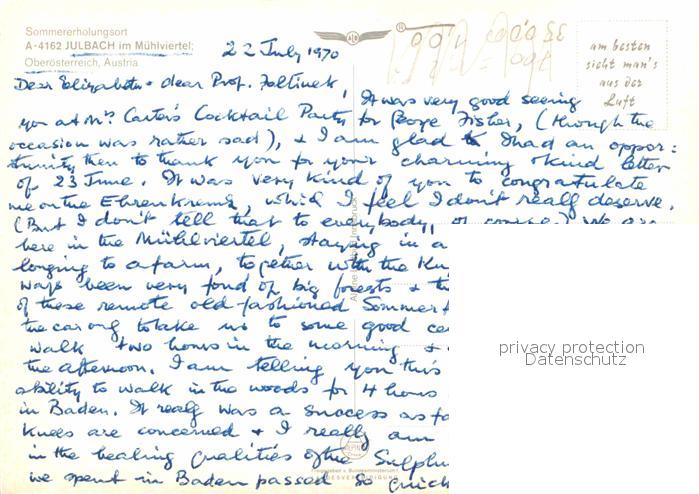 Sommererholungsort
A-4162 JULBACH im Mühlviertel;
Oberösterreich, Austria
22 July 1970
35 0,00
400
am besten
sieht man's
aus der
Luft
Dear Elizabeth + dear Prof.
It was very good seeing
you at Mrs Carter's Cocktail Party for George Fisher, (though the
occasion was rather sad), + I am glad I had an oppor:
tunity then to thank you for your charming + kind letter
of 23 June. It was very kind of you to congratulate
me on the Ehrenkreuz, which I feel I don't really deserve.
(But I don't tell that to everybody, of course) We are
here in the Mühlviertel, staying in a
longing to a farm, together with the
ways been very fond of big forests + th
of these remote old-fashioned Sommer
the car only to take us to some good ce
walk two hours in the morning +
the afternoon. I am telling you this
ability to walk in the woods for 4 hours
in Baden. It really was a success as fa
knees are concerned + I really am
in the healing qualities of the Sulphu
we spent in Baden passed so quick
privacy protection
Datenschutz